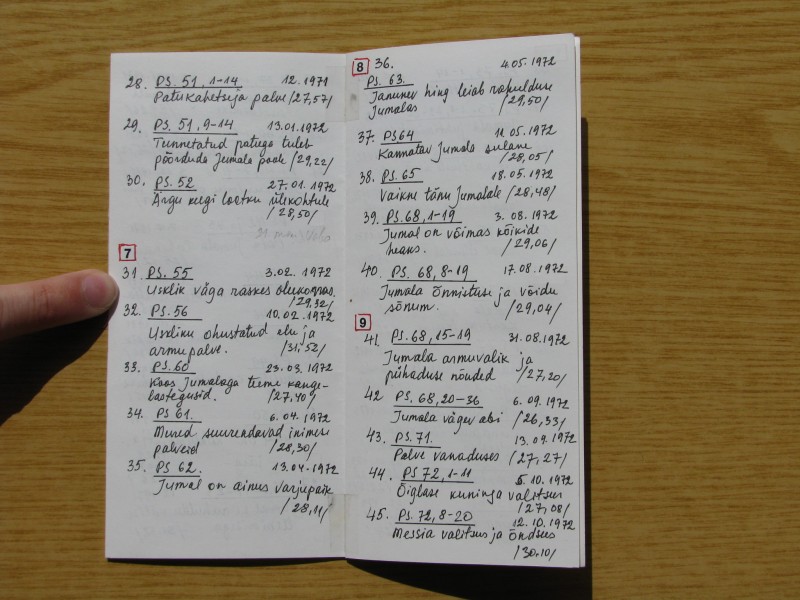 28. PS. 51, 1-14 12.1971
Patukahetseja palve /27,57/
29. PS. 51, 9-14 13.01.1972
Tunnetatud patuga tuleb
pöörduda Jumala poole /29,22/
30. PS. 52 27.01.1972
Ärgu keegi lootku ülekohtule
/28,50/
7
31. PS. 55 3.02. 1972
Usklik väga raskes olukorras.
/29,32/
32. PS. 56 10.02.1972
Uskliku ohustatud elu ja
armupalve. /31,52/
33. PS. 60 23.03.1972
Koos Jumalaga teeme kange-
lastegusid. /27,40/
34. PS 61. 6.04.1972
Mured suurendavad inimese
palveid /28,30/
35. PS 62. 13.04.1972
Jumal on ainus varjupaik
/28,11/
8 36. 4.05.1972
PS. 63.
Janunev hing leiab rahulduse
Jumalas /29,50/
37. PS 64 11.05.1972
Kannatav Jumala sulane
/28,05/
38. PS. 65 18.05.1972
Vaikne tänu Jumalale /28,48/
39. PS. 68, 1-19 3.08.1972
Jumal on võimas kõikide
heaks. /29,06/
40. PS. 68, 8-19 17.08.1972
Jumala õnnistuse ja võidu
sõnum. /29,04/
9
41. PS. 68, 15-19 31.08.1972
Jumala armuvalik ja
pühaduse nõuded /27,20/
42 PS. 68, 20-36 6.09.1972
Jumala vägev abi /26,33/
43. PS. 71. 13.09.1972
Palve vanaduses /27,27/
44. PS 72, 1-11 5.10.1972
Õiglase kuninga valitsus
/27,08/
45. PS. 72, 8-20 12.10.1972
Messia valitsus ja õndsus
/30,10/